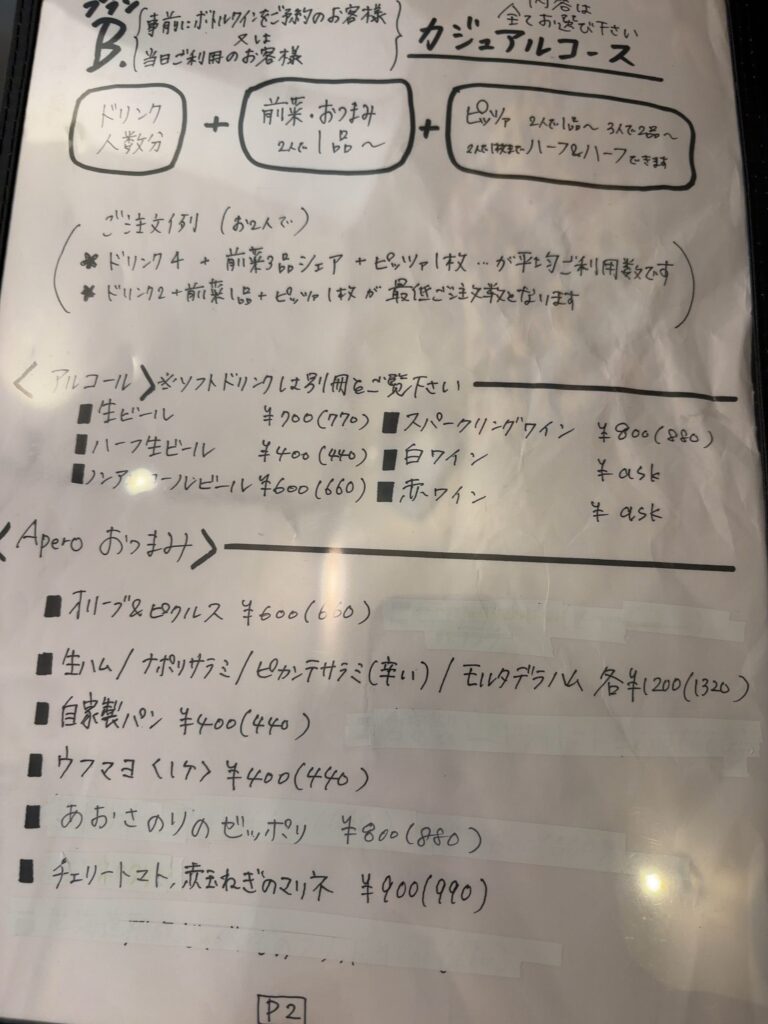 プラン
B. 事前にボトルワインをご予約のお客様
又は
当日ご利用のお客様
内容は
全てお選び下さい
カジュアルコース
ドリンク
人数分
+
前菜・おつまみ
2人で1品〜
+
ピッツァ 2人で1品〜 3人で2品〜
2人で1枚まで ハーフ&ハーフできます
ご注文例 (お2人で)
* ドリンク4 + 前菜3品シェア + ピッツァ1枚 … が平均ご利用数です
* ドリンク2+前菜1品+ピッツァ1枚が 最低ご注文数となります
<アルコール>※ソフトドリンクは別冊をご覧下さい
■生ビール ¥700(770)
■ハーフ生ビール ¥400(440)
■ノンアルコールビール ¥600(660)
■スパークリングワイン ¥800(880)
■白ワイン ¥ask
■赤ワイン ¥ask
<Apero おつまみ>
■オリーブ&ピクルス ¥600(660)
■生ハム/ナポリサラミ/ピカンテサラミ(辛い)/モルタデラハム 各¥1200(1320)
■自家製パン ¥400(440)
■ウフマヨ<1ケ>¥400(440)
■あおさのりのゼッポリ ¥800(880)
■チェリートマト,赤玉ねぎのマリネ ¥900(990)
P2